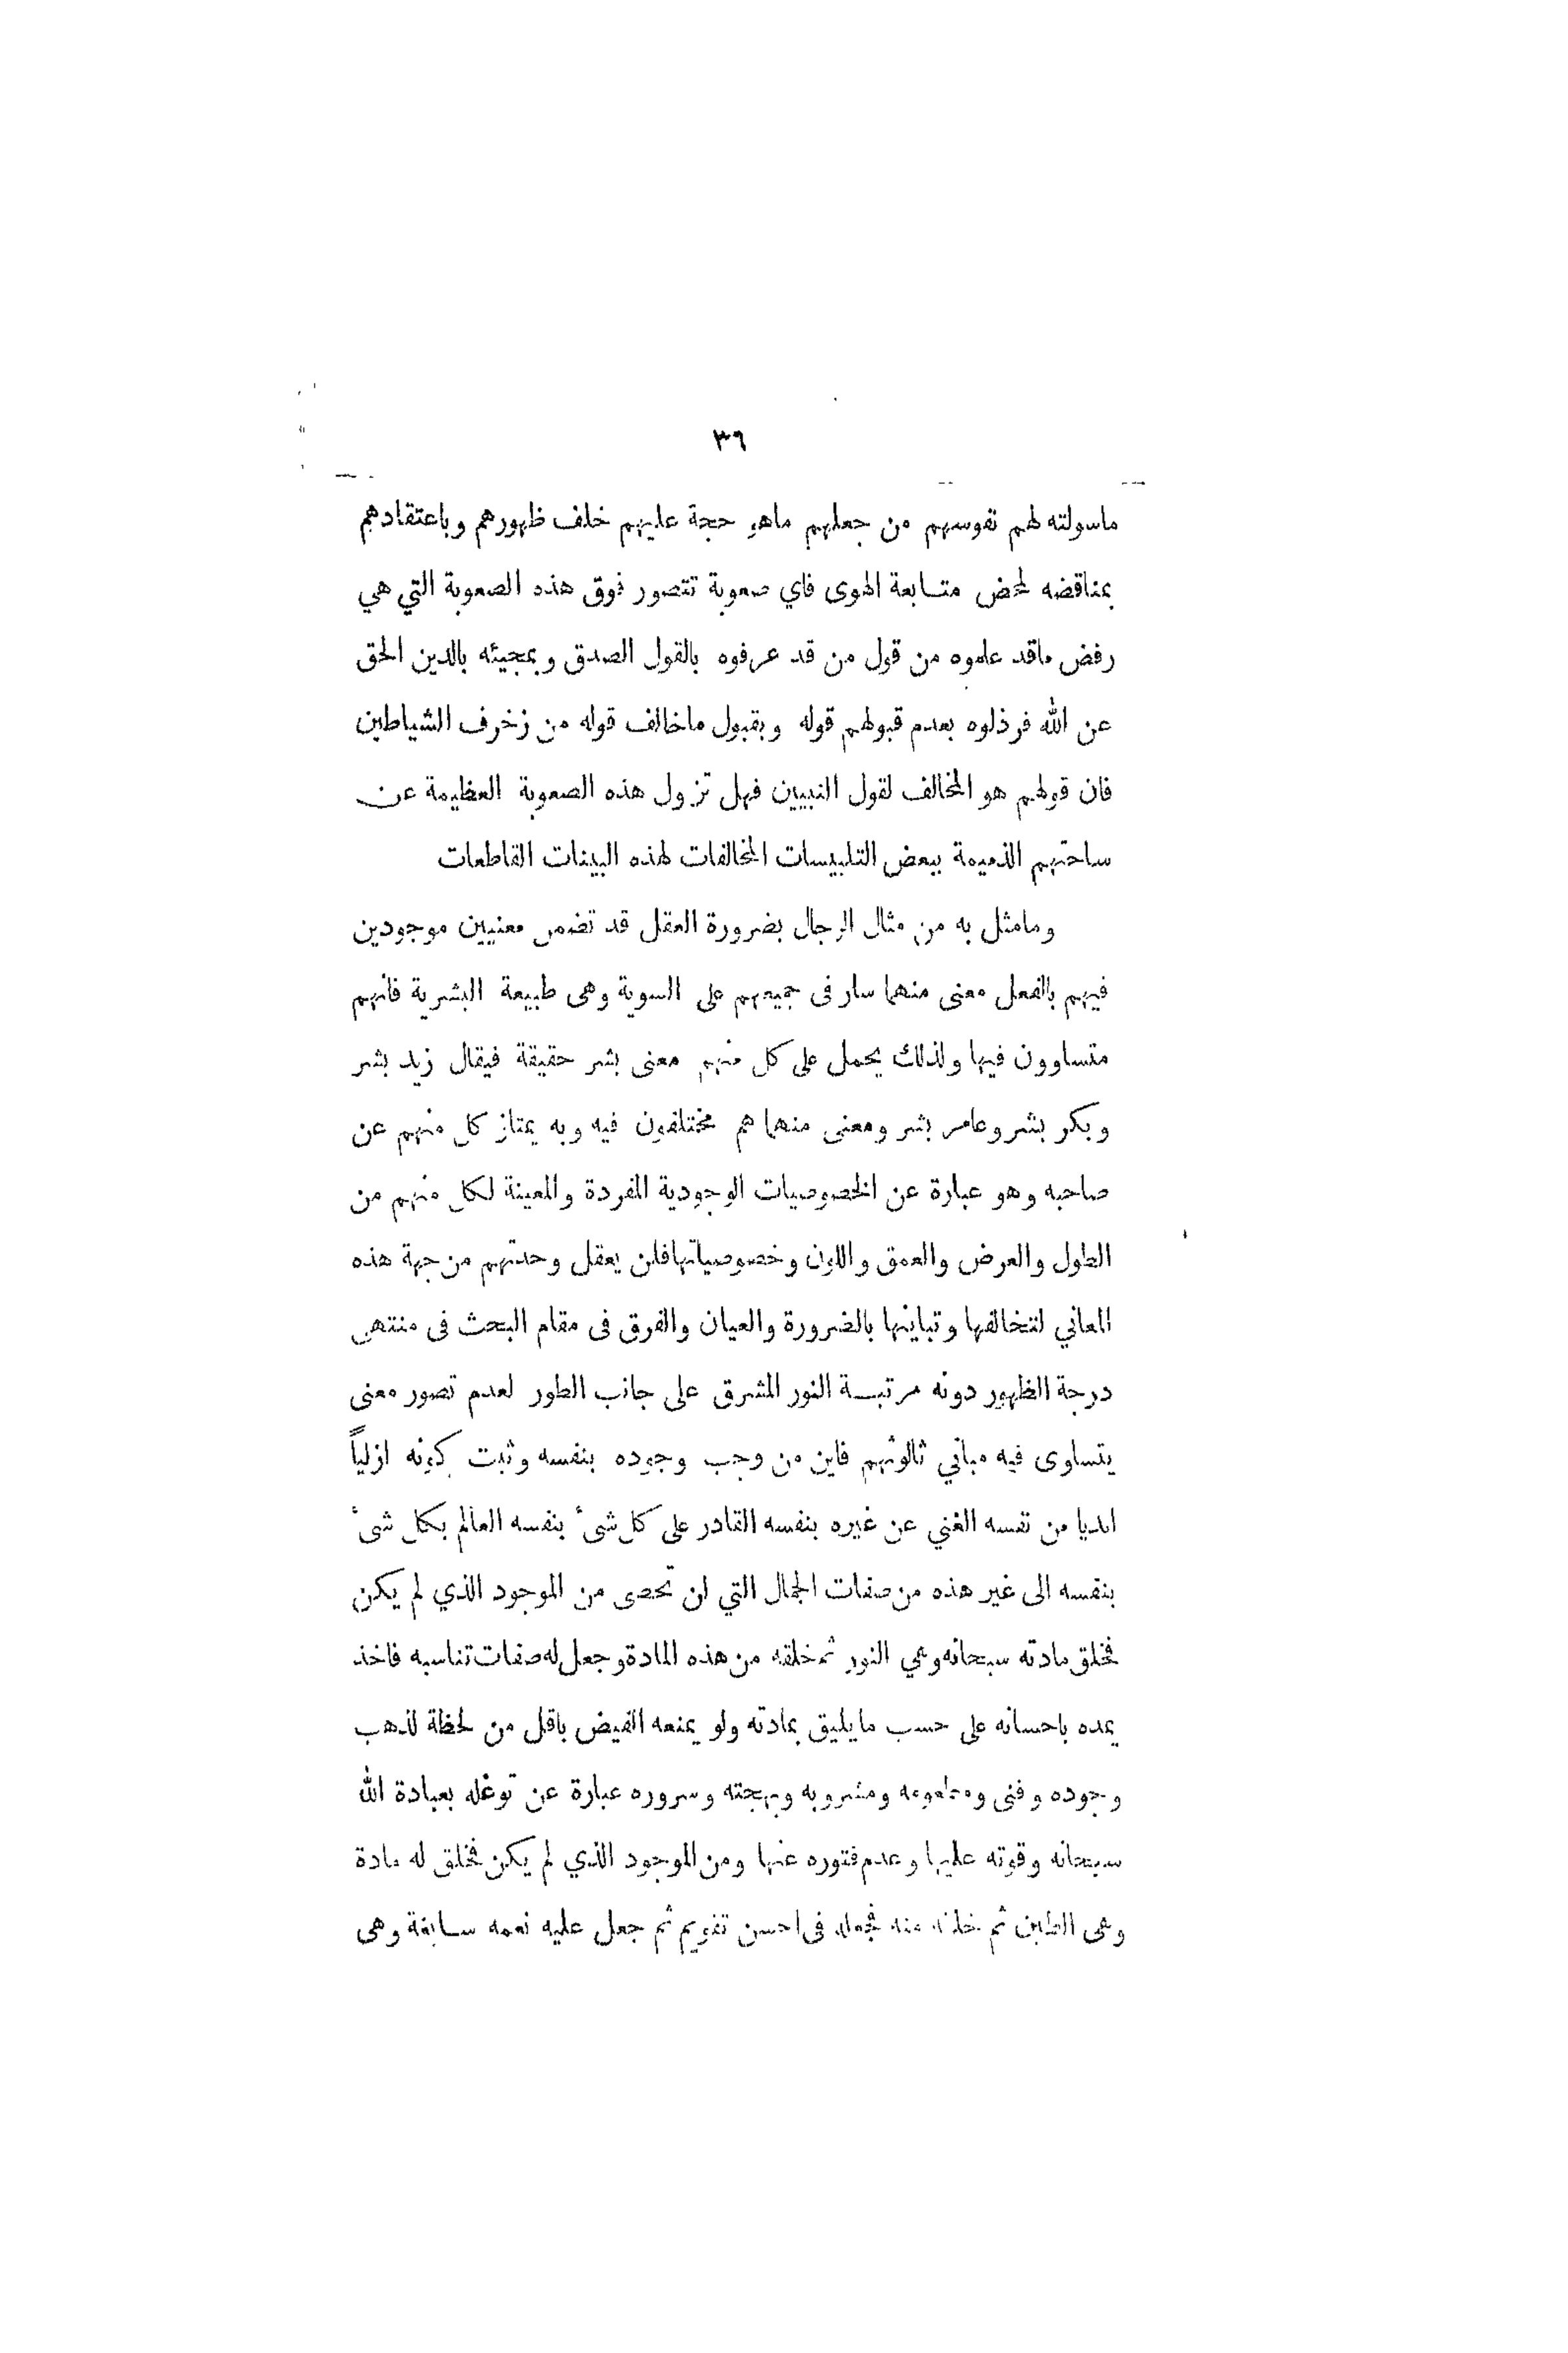 ٣٦
ماسولته لهم نفوسهم من جعلهم ماهو حجة عليهم خلف ظهورهم وباعتقادهم
بمناقضه لمحض متابعة الهوى فاي صعوبة تتصور فوق هذه الصعوبة التي هي
رفض ماقد علموه من قول من قد عرفوه بالقول الصدق وبمجيئه بالدين الحق
عن الله فرذلوه بعدم قبولهم قوله وبقبول ماخالف قوله من زخرف الشياطين
فان قولهم هو المخالف لقول النبيين فهل تزول هذه الصعوبة العظيمة عن
ساحتهم الذميمة ببعض التلبيسات المخالفات لهذه البينات القاطعات
ومامثل به من مثال الرجال بضرورة العقل قد تضمن معنيين موجودين
فيهم بالفعل معنى منهما سار فى جميعهم على السوية وهى طبيعة البشرية فانهم
متساوون فيها ولذلك يحمل على كل منهم معنى بشر حقيقة فيقال زيد بشر
وبكر بشر وعامر بشر ومعنى منهما هم مختلفون فيه وبه يمتاز كل منهم عن
صاحبه وهو عبارة عن الخصوصيات الوجودية المفردة والمعينة لكل منهم من
الطول والعرض والعمق واللون وخصوصياتها فلن يعقل وحدتهم من جهة هذه
المعاني لتخالفها وتباينها بالضرورة والعيان والفرق فى مقام البحث فى منتهى
درجة الظهور دونه مرتبة النور المشرق على جانب الطور لعدم تصور معنى
يتساوى فيه مباني ثالوثهم فاين من وجب وجوده بنفسه وثبت كونه ازلياً
ابديا من نفسه الغني عن غيره بنفسه القادر على كل شئ بنفسه العالم بكل شئ
بنفسه الى غير هذه من صفات الجمال التي ان تحصى من الموجود الذي لم يكن
فخلق مادته سبحانه وهي النور ثم خلقه من هذه المادة وجعل له صفات تناسبه فاخذ
يمده باحسانه على حسب مايليق بمادته ولو يمنعه الفيض باقل من لحظة لذهب
وجوده وفنى ومطعومه ومشروبه وبهجته وسروره عبارة عن توغله بعبادة الله
سبحانه وقوته عليها وعدم فتوره عنها ومن الموجود الذي لم يكن فخلق له مادة
وهى الطين ثم خلقه منه فجعله فى احسن تقويم ثم جعل عليه نعمه سابغة وهى